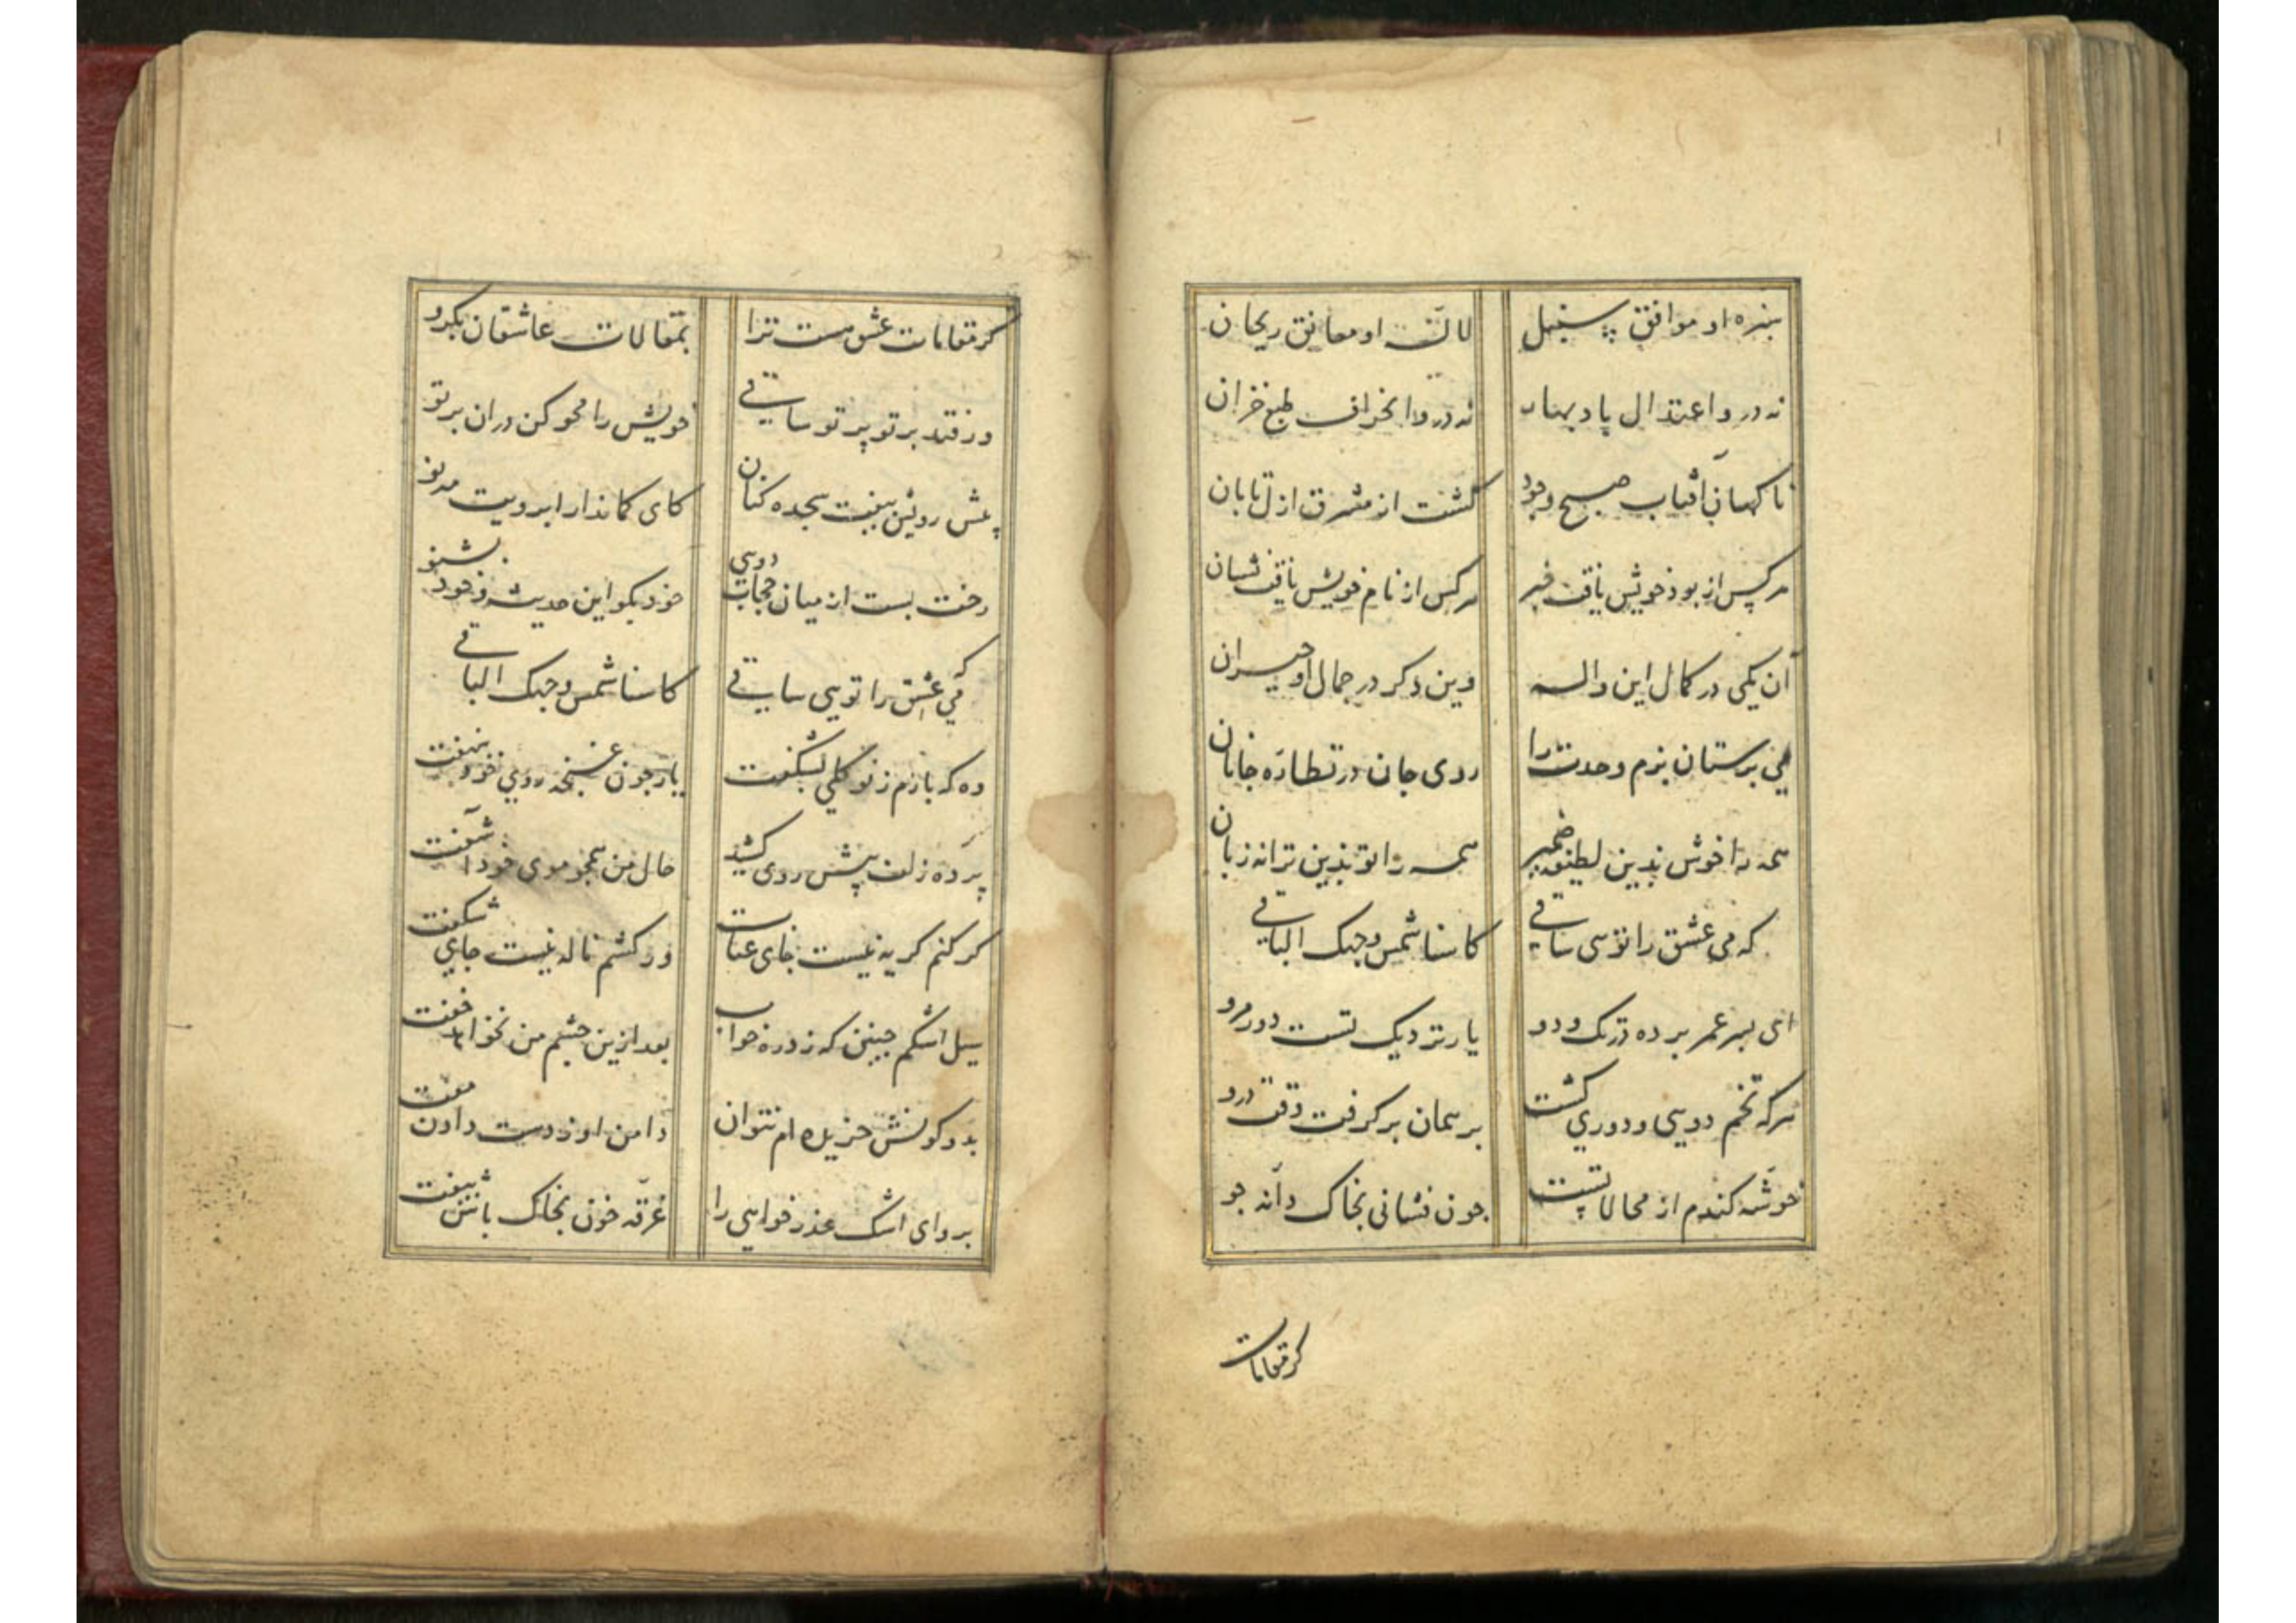 سبزه او موافق سنبل لاله او معانق ریحان
نه درو اعتدال باد بهار نه درو انحراف طبع خزان
ناکهان آفتاب صبح وجود کشت از مشرق ازل تابان
هرکس از بوذ خویش یافت خبر هرکس از نام خویش یافت نشان
آن یکی در کمال این واله وین دکر در جمال او حیران
می پرستان بزم وحدت را روی جان در نظاره جانان
همه را خوش بذین لطیفه ضمیر همه را تو بذین ترانه زبان
که می عشق را تویی ساقی کاسنا شمس وجهک الباقی
ای بسر عمر برده در تک و دو یار نزدیک تست دور مرو
هرکه تخم دویی و دوری کشت بر همان برکرفت وقت درو
خوشه کندم از محالاتست جون فشانی بخاک دانه جو
کر مقامات
کر مقامات عشق هست ترا بمقالات عاشقان بکرو
ور فتد بر تو پرتو ساقی خویش را محو کن دران پرتو
پیش رویش بیفت سجده کنان کای کماندار ابرویت مه نو
رخت بست از میان حجاب دویی خود بکو این حدیث و خود بشنو
کی عشق را تویی ساقی کاسنا شمس وجهک الباقی
وه که بازم ز نو کلی بشکفت یار جون غنجه روی خود بنهفت
پرده زلف پیش روی کشید حال من همجو موی خود آشفت
کر کنم کریه نیست جای عتاب ور کشم ناله نیست جای شکفت
سیل اشکم جنین که زد ره خواب بعد ازین جشم من نخواهد خفت
بدو کونش خریده ام نتوان دامن او ز دست دادن مفت
برو ای اشک عذر خواهی را غرقه خون بخاک باش بیفت